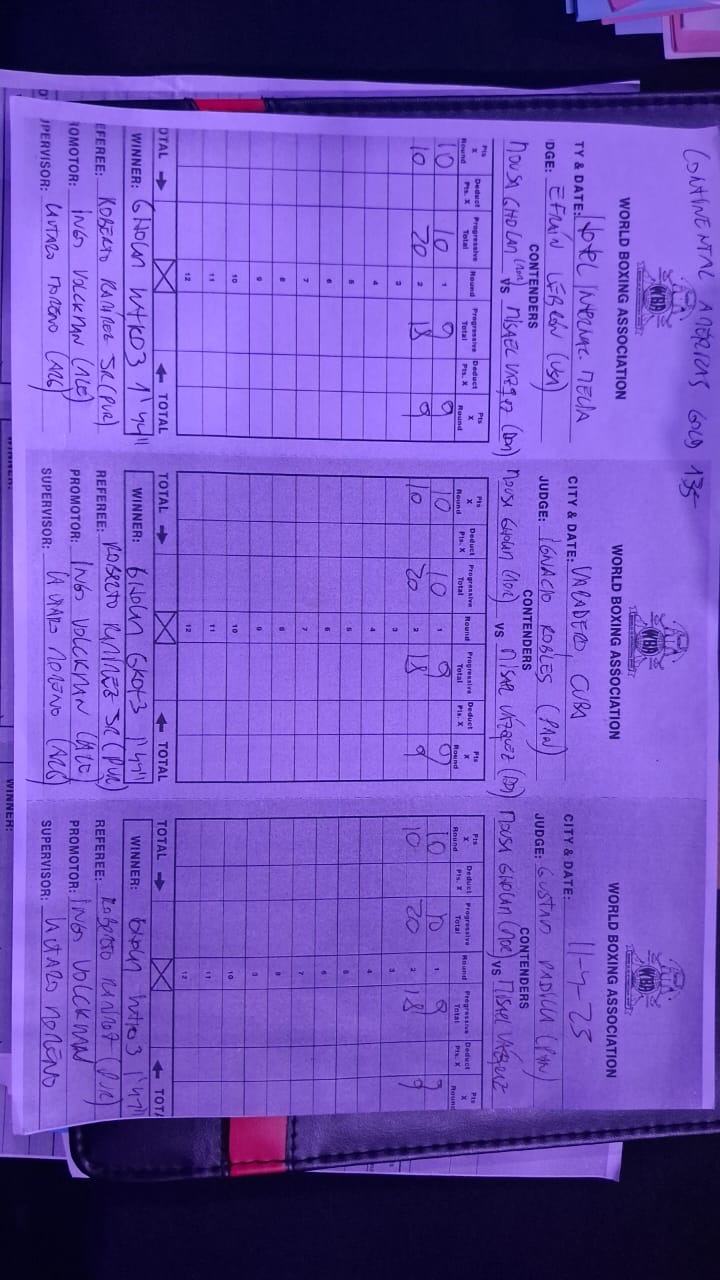 CONTINENTAL AMERICAS GOLD 135
WBA
WORLD BOXING ASSOCIATION
TY & DATE: HOTEL INTERNAC. MELIA
DGE: EFRAIN LEBRON (USA)
CONTENDERS
MOUSA GHOLAM (MOR) VS MISAEL VAZQUEZ
Pts X Round Deduct Pts. X Progressive Total Round Progressive Total Deduct Pts. X Pts X Round
10 10 1 9 9
10 20 2 18 9
3
4
5
6
7
8
9
10
11
12
OTAL → ← TOTAL
WINNER: GHOLAM WTKO3 1'44"
EFEREE: ROBERTO RAMIREZ SR (PUR)
ROMOTOR: INGO VOLCKMAN (ALE)
UPERVISOR:
WBA
WORLD BOXING ASSOCIATION
CITY & DATE: VARADERO, CUBA
JUDGE: IGNACIO ROBLES (PAN)
CONTENDERS
MOUSA GHOLAM (MOR) VS MISAEL VAZQUEZ
Pts X Round Deduct Pts. X Progressive Total Round Progressive Total Deduct Pts. X Pts X Round
10 10 1 9 9
10 20 2 18 9
3
4
5
6
7
8
9
10
11
12
TOTAL → ← TOTAL
WINNER: GHOLAM 1'44"
REFEREE: ROBERTO RAMIREZ SR (PUR)
PROMOTOR: INGO VOLCKMAN (ALE)
SUPERVISOR:
WBA
WORLD BOXING ASSOCIATION
CITY & DATE: 11-4-25
JUDGE: GUSTAVO PADILLA (PAN)
CONTENDERS
MOUSA GHOLAM (MOR) VS MISAEL VAZQUEZ
Pts X Round Deduct Pts. X Progressive Total Round Progressive Total Deduct Pts. X Pts X Round
10 10 1 9 9
10 20 2 18 9
3
4
5
6
7
8
9
10
11
12
TOTAL → ← TOTA
WINNER: GHOLAM WTKO3 1'44"
REFEREE: ROBERTO (PUR)
PROMOTOR: INGO VOLCKMAN
SUPERVISOR:
WINNER: